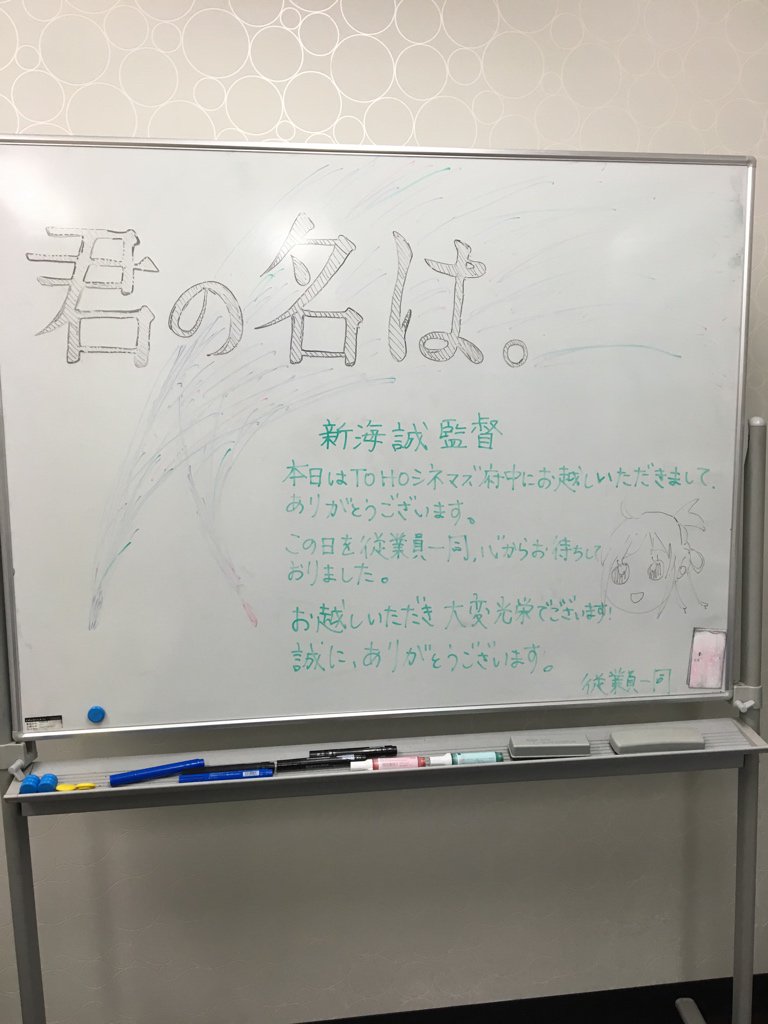 君の名は。
新海誠監督
本日はTOHOシネマズ府中にお越しいただきまして、
ありがとうございます。
この日を従業員一同、心からお待ちして
おりました。
お越しいただき大変光栄でございます!
誠に、ありがとうございます。
従業員一同